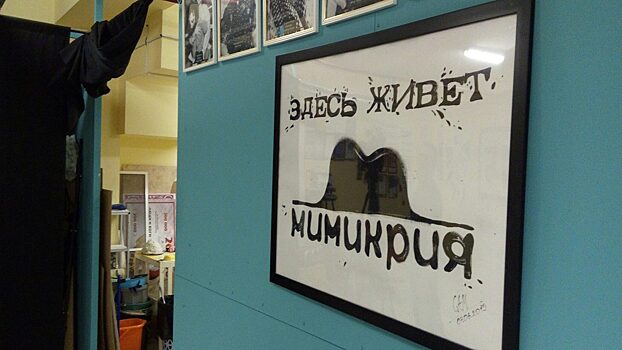 ЗДЕСЬ ЖИВЕТ
МИМИКРИЯ